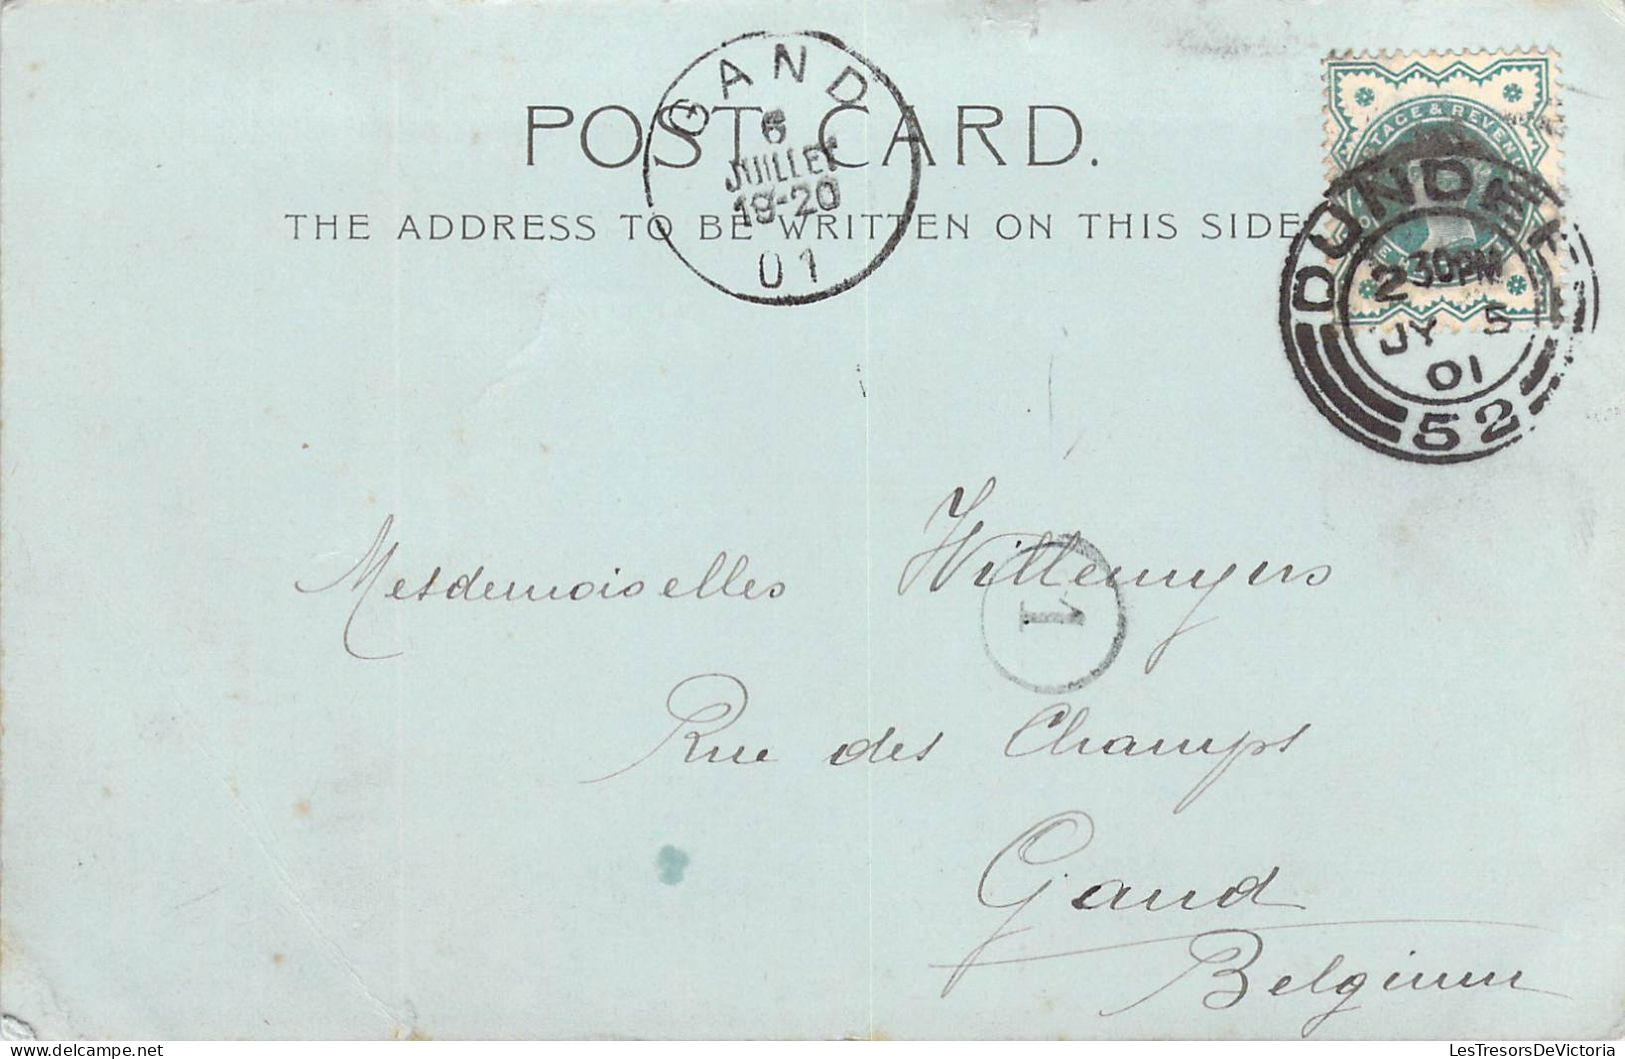 GAND
6
JUILLET
19-20
01
POST CARD.
THE ADDRESS TO BE WRITTEN ON THIS SIDE
POSTAGE & REVENUE
DUNDEE
2 30PM
JY 5
01
52
Mesdemoiselles Willemyns
1
Rue des Champs
Gand
Belgium
LesTresorsDeVictoria